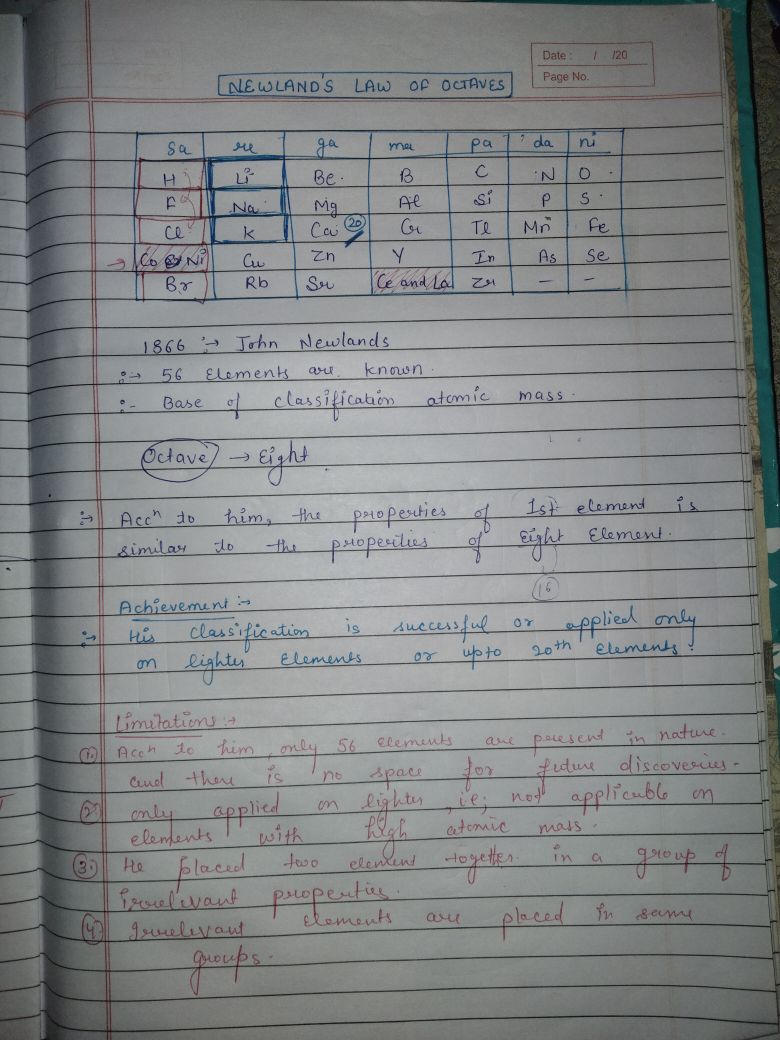 Date : / /20
Page No.
NEWLAND'S LAW OF OCTAVES
Sa re ga ma pa da ni
H Li Be B C N O
F Na Mg Al Si P S
Cl K Ca 20 Cr Te Mn Fe
Co & Ni Cu Zn Y In As Se
Br Rb Sr Ce and La Zr — —
1866 :→ John Newlands
:→ 56 Elements are known.
:- Base of classification atomic mass.
Octave → Eight
:→ Accⁿ to him, the properties of 1st element is
similar to the properties of Eight Element.
16
Achievement :→
:→ His classification is successful or applied only
on lighter Elements or upto 20th Elements.
Limitations :→
1. Accⁿ to him, only 56 elements are present in nature.
and there is no space for future discoveries.
2. only applied on lighter, ie; not applicable on
elements with high atomic mass.
3. He placed two element together in a group of
irrelivant properties.
4. Irrelivant Elements are placed in same
groups.